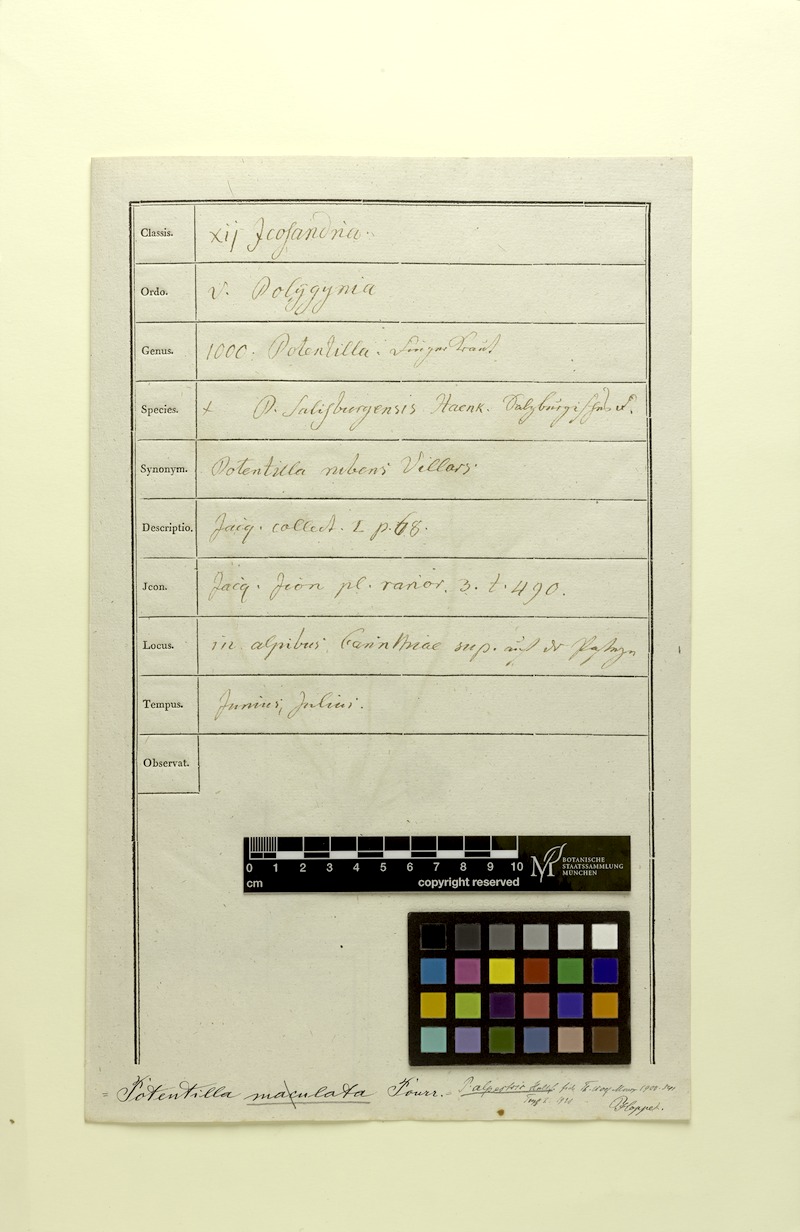 Classis. xij Jcosandria.
Ordo. v. Polÿgynia
Genus. 1000. Potentilla. Fingerkraut
Species. + P. Salisburgensis Haenk. Salzburgisches F.
Synonym. Potentilla rubens Villars.
Descriptio. Jacq. collect. 2 p. 68.
Jcon. Jacq. Jcon pl. rarior. 3. t. 490.
Locus. in alpibus Carinthiae sup. auf der
Tempus. Junius, Julius.
Observat.
0 1 2 3 4 5 6 7 8 9 10
cm copyright reserved
BOTANISCHE
STAATSSAMMLUNG
MÜNCHEN
= Potentilla maculata Pourr. P. alpestris Hall. fil.